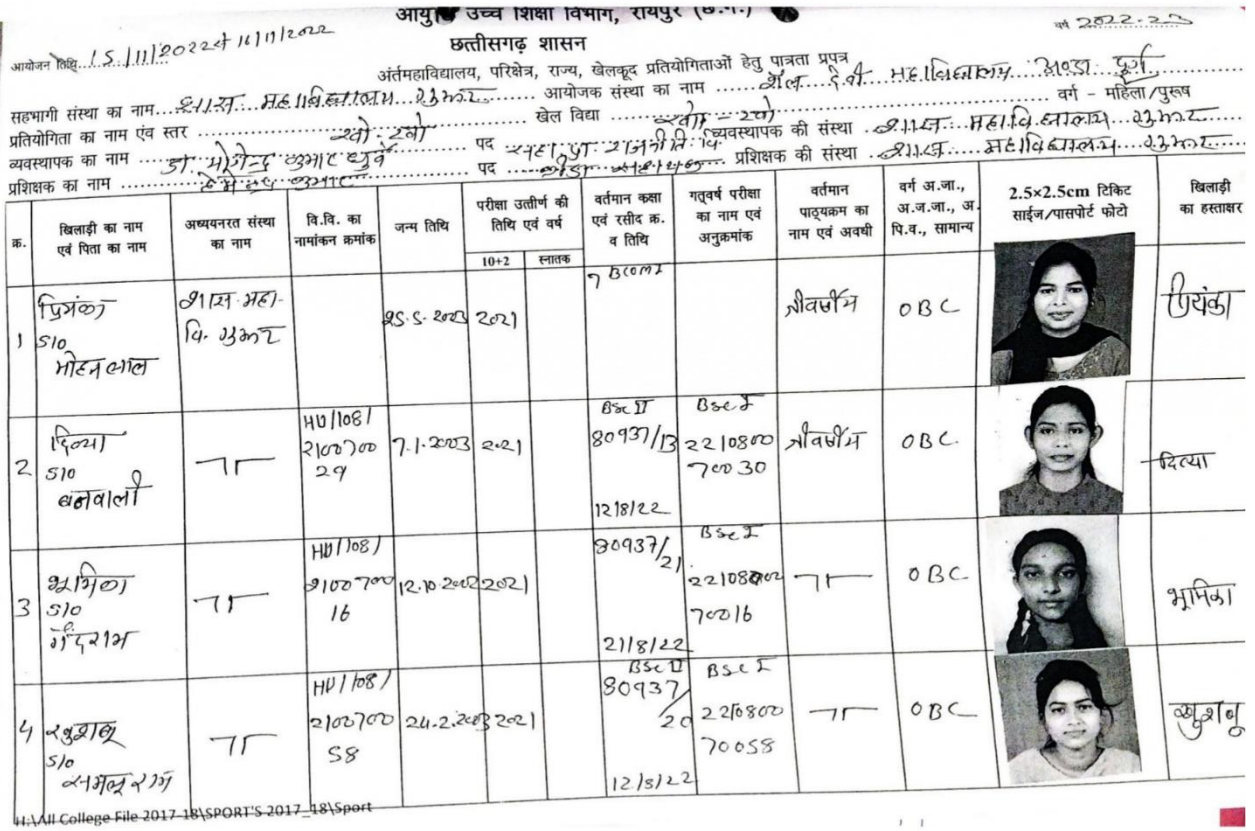 आयु उच्च शिक्षा विभाग, रायपुर (छ.ग.)
वर्ष 2022-23
आयोजन तिथि 15/11/2022 से 16/11/2022
छत्तीसगढ़ शासन
अंर्तमहाविद्यालय, परिक्षेत्र, राज्य, खेलकूद प्रतियोगिताओं हेतु पात्रता प्रपत्र
सहभागी संस्था का नाम शास. महाविद्यालय आयोजक संस्था का नाम शैल देवी महाविद्यालय अण्डा दुर्ग
प्रतियोगिता का नाम एंव स्तर खो-खो खेल विद्या खो-खो वर्ग - महिला/पुरूष
व्यवस्थापक का नाम डॉ. कुमार धुर्वे पद सहा. प्रा. राजनीति वि. व्यवस्थापक की संस्था शास. महाविद्यालय
प्रशिक्षक का नाम कुमार पद क्रीडा प्रशिक्षक की संस्था शास. महाविद्यालय
क्र. खिलाड़ी का नाम एवं पिता का नाम अध्ययनरत संस्था का नाम वि.वि. का नामांकन क्रमांक जन्म तिथि परीक्षा उत्तीर्ण की तिथि एवं वर्ष वर्तमान कक्षा एवं रसीद क्र. व तिथि गतवर्ष परीक्षा का नाम एवं अनुक्रमांक वर्तमान पाठ्यक्रम का नाम एवं अवधी वर्ग अ.जा., अ.ज.जा., अ.पि.व., सामान्य 2.5×2.5cm टिकिट साईज/पासपोर्ट फोटो खिलाड़ी का हस्ताक्षर
10+2 स्नातक
1 प्रियंका S/O मोहन लाल शास. महा-वि. 25.5.2003 2021 BCOM I त्रीवर्षीय OBC प्रियंका
2 दिव्या S/O बनवाली HU/108/2100700 29 7.1.2003 2021 BSc II 80937/13 12/8/22 BSc I 220800 70030 त्रीवर्षीय OBC दिव्या
3 भूमिका S/O गैंदराम HU/108/2100700 16 12.10.2002 2021 80937/21 21/8/22 BSc I 70016 OBC भूमिका
4 खुशबू S/O HU/108/2100700 58 24.2.2003 2021 BSc II 80937/20 12/8/22 BSc I 220800 70058 OBC खुशबू
H:\All College File 2017-18\SPORT'S 2017_18\Sport